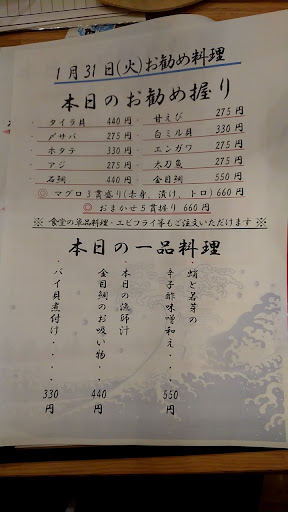 1月31日(火)お勧め料理
本日のお勧め握り
・タイラ貝 440円・甘えび 275円
・〆サバ 275円・白ミル貝 330円
・ホタテ 330円・エンガワ 275円
・アジ 275円・太刀魚 275円
・石鯛 440円・金目鯛 550円
◎マグロ3貫盛り(赤身、漬け、トロ)660円
◎おまかせ5貫握り 660円
※ 食堂の単品料理・エビフライ等もご注文いただけます ※
本日の一品料理
・蛸と若芽の
辛子酢味噌和え・・・550円
・本日の漁師汁
金目鯛のお吸い物・・440円
・バイ貝煮付け・・・・330円